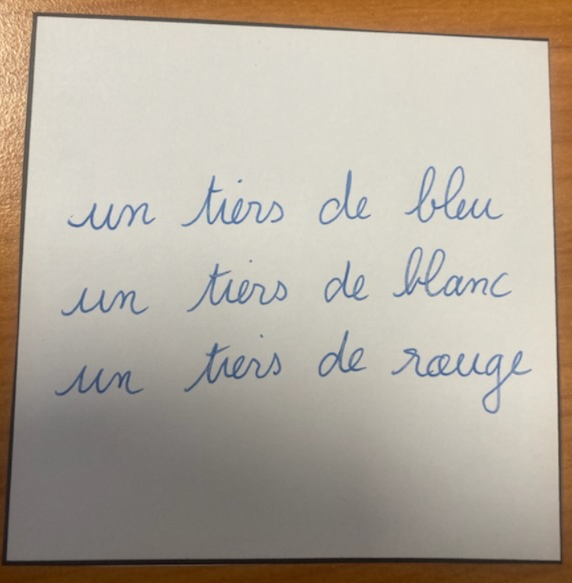 un tiers de bleu
un tiers de blanc
un tiers de rouge